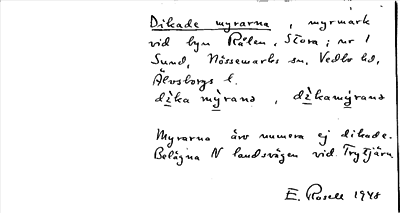 Dikade myrarna, myrmark
vid byn Rålen, Stora; nr 1
Sund, Nössemarks sn, Vedbo hd,
Älvsborgs l.
dìka mỳrana, dìkamýrana
Myrarna äro numera ej dikade.
Belägna N landsvägen vid Trytjärn
E. Rosell 1948